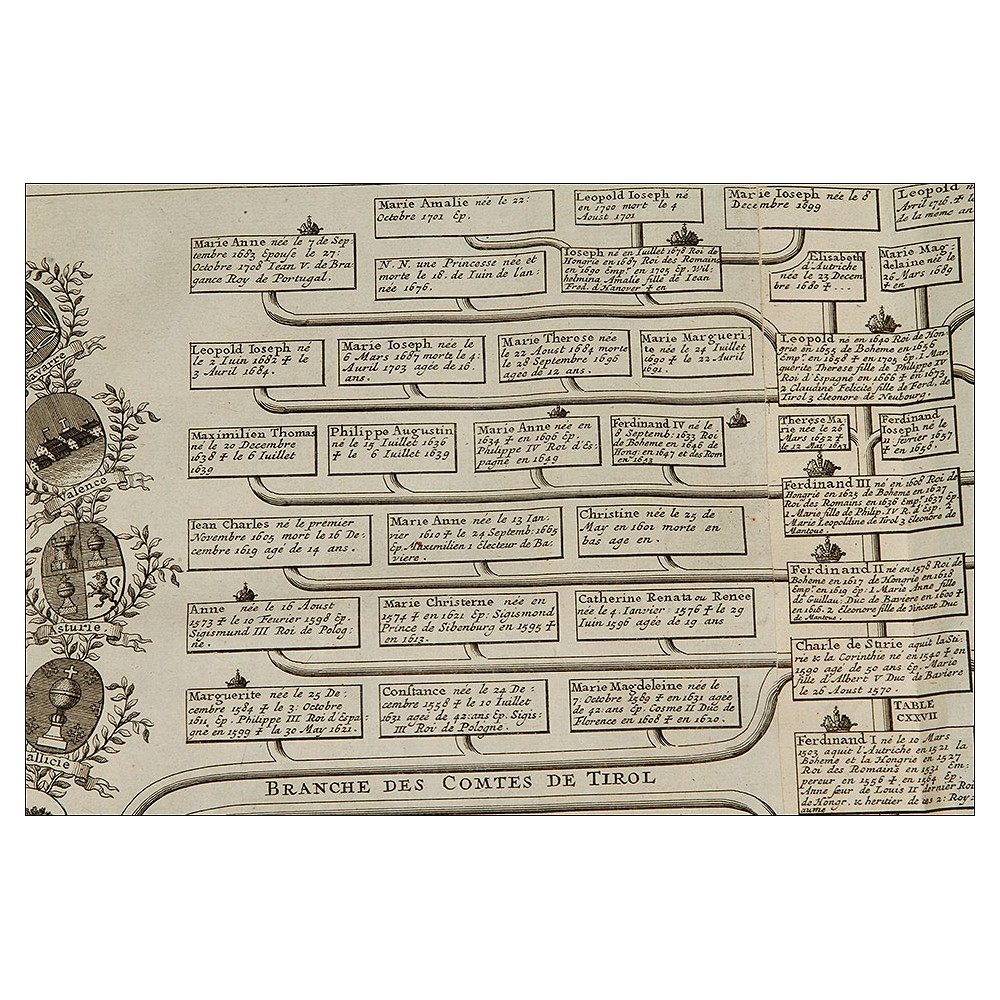 Marie Amalie née le 22:
Octobre 1701 Ep.
Leopold Ioseph né
en 1700 mort le 4
Aoust 1701
Marie Ioseph née le 8
Decembre 1699
Leopold n
Avril 1716. ✝ le
de la méme an
Marie Anne née le 7 de Sep:
tembre 1683 Epouse le 27:
Octobre 1708 Iean V. de Bra
gance Roy de Portugal.
N. N. une Princesse née et
morte le 18. de Iuin de l'an:
née 1676.
Ioseph né en Iuillet 1678 Roi de
Hongrie en 1687 Roi des Romains
en 1690 Emp.r en 1705 Ep. Wil:
helmina Amalie fille de Iean
Fred. d'Hanover ✝ en
Ælisabeth
d'Autriche
née le 23 Decem
bre 1680 ✝ ...
Marie Mag-
delaine née le
26 Mars 1689
✝ en
Leopold Ioseph né
le 2 Iuin 1682 ✝ le
3 Avril 1684.
Marie Ioseph née le
6 Mars 1687 morte le 4:
Avril 1703 agée de 16.
ans.
Marie Therose née
le 22 Aoust 1684 morte
le 28 Septembre 1696
agée de 12 ans.
Marie Margueri
te née le 24 Iuillet
1690 ✝ le 22 Avril
1691.
Leopold né en 1640 Roi de Hon
grie en 1655 de Boheme en 1656
Emp.r en 1658 ✝ en 1705 Ep. 1 Mar
guérite Therese fille de Philippe IV
Roi d'Espagne en 1666 ✝ en 1673
2 Claudine Felicité fille de Ferd. de
Tirol 3 Eleonore de Neubourg.
Maximilien Thomas
né le 20 Decembre
1638 ✝ le 6 Iuillet
1639
Philippe Augustin
né le 15 Iuillet 1636
✝ le 6 Iuillet 1639
Marie Anne née en
1634 ✝ en 1696 Ep.
Philippe IV Roi d'Es:
pagne en 1649
Ferdinand IV né le
8 Septemb: 1633 Roi
de Boheme en 1646 de
Hong: en 1647 et des Rom
en 1653
Therese Ma
rie née le 26
Mars 1652 ✝
le 12 Mai 1653
Ferdinand
Ioseph né le
11 fevrier 1657
✝ en 1658.
Ferdinand III né en 1608 Roi de
Hongrie en 1625 de Boheme en 1627
Roi des Romains en 1636 Emp.r 1637 Ep.
1 Marie fille de Philip. IV R. d'Esp. 2
Marie Leopoldine de Tirol 3 eleonore de
Mantoue
Iean Charles né le premier
Novembre 1605 mort le 16 De:
cembre 1619 age de 14 ans.
Marie Anne née le 13 Ian:
vier 1610 ✝ le 24 Septemb: 1665
Ep. Maximilien 1 Electeur de Ba:
viere.
Christine née le 25 de
May en 1601 morte en
bas age en.
Ferdinand II né en 1578 Roi de
Boheme en 1617 de Hongrie en 1618
Emp. en 1619 Ep: 1 Marie Anne fille
de Guillau: Duc de Baviere en 1600 ✝
en 1616. 2 Eleonore fille de Vincent Duc
de Mantoue.
Anne née le 16 Aoust
1573 ✝ le 10 Fevrier 1598 Ep.
Sigismund III Roi de Polog:
ne.
Marie Christerne née en
1574 ✝ en 1621 Ep: Sigismond
Prince de Sibenburg en 1595 ✝
en 1613.
Catherine Renata ou Renee
née le 4. Ianvier 1576 ✝ le 29
Iuin 1596 agée de 19 ans
Charle de Stirie aquit la Sti:
rie & la Corinthie né en 1540 ✝ en
1590 agé de 50 ans Ep. Marie
fille d'Albert V Duc de Baviere
le 26 Aoust 1570.
Marguerite née le 25 De:
cembre 1584 ✝ le 3: Octobre
1611, Ep. Philippe III Roi d'Espa:
gne en 1599 ✝ la 30 May 1621.
Constance née le 24 De:
cembre 1558 ✝ le 10 Iuillet
1631 ageé de 42: ans Ep. Sigis:
III Roi de Pologne.
Marie Magdeleine née le
7 Octobre 1589 ✝ en 1631 agée
de 42: ans Ep. Cosme II Duc de
Florence en 1608 ✝ en 1620.
TABLE
CXXVII
Ferdinand I né le 10 Mars
1503 aquit l'Autriche en 1521 la
Boheme et la Hongrie en 1527
Roi des Romains en 1531 Em:
pereur en 1556 ✝ en 1564 Ep.
Anne sœur de Louis II dernier Roi
de Hongr. & heritier de ces 2: Roy:
aume
BRANCHE DES COMTES DE TIROL
Navarre
Valence
Asturie.
allicie